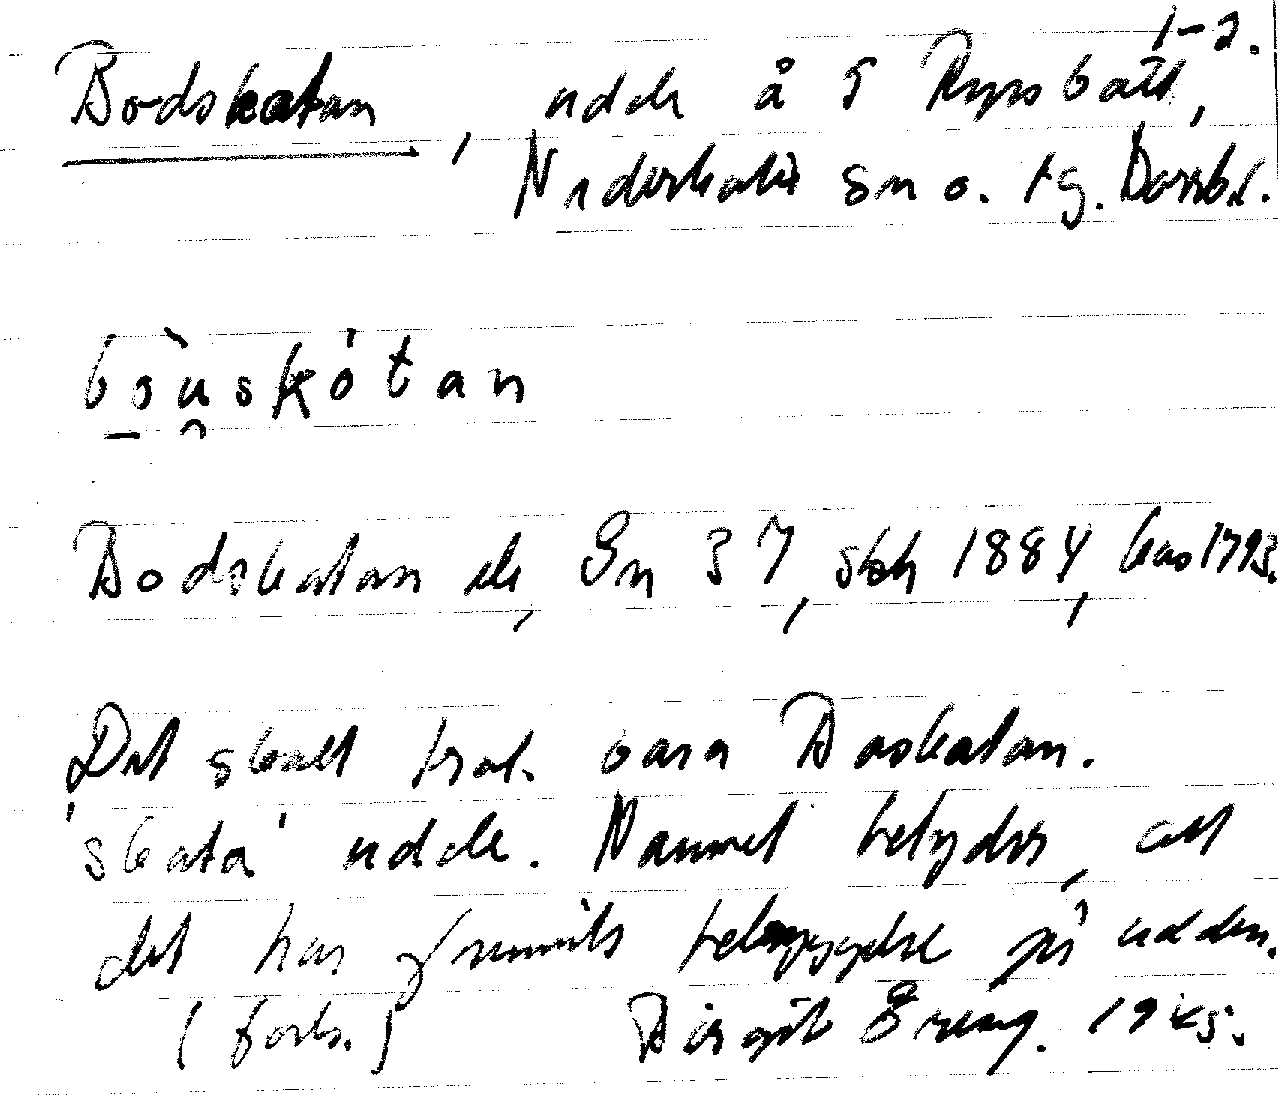 1-2.
Bodskatan, udde å S Rysobått,
Nederkalix sn o. tg. Norrb.l.
bo̱u̯skȯtan
Bodskatan de, Gn 37, sth 1884, kas 1793.
Det skall trol. vara Boskatan.
'skata' udde. Namnet betyder, att
det har funnits bebyggelse på udden.
(forts.) Birgit Öreng. 1945.